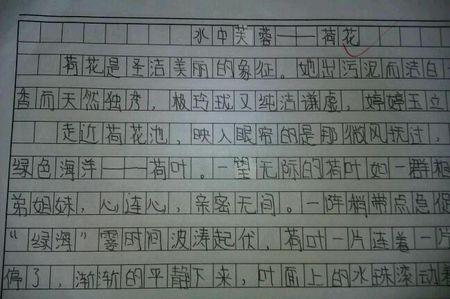 水中芙蓉——荷花
荷花是圣洁美丽的象征。她出污泥而洁白
香而天然独秀，极玲珑又纯洁谦虚，婷婷玉立
走近荷花池，映入眼帘的是那微风抚过，
绿色海洋——荷叶。一望无际的荷叶如一群
弟姐妹，心连心，亲密无间。一阵稍带点急促
“绿海”霎时间波涛起伏，荷叶一片连着一片
停了，渐渐的平静下来，叶面上的水珠滚动着